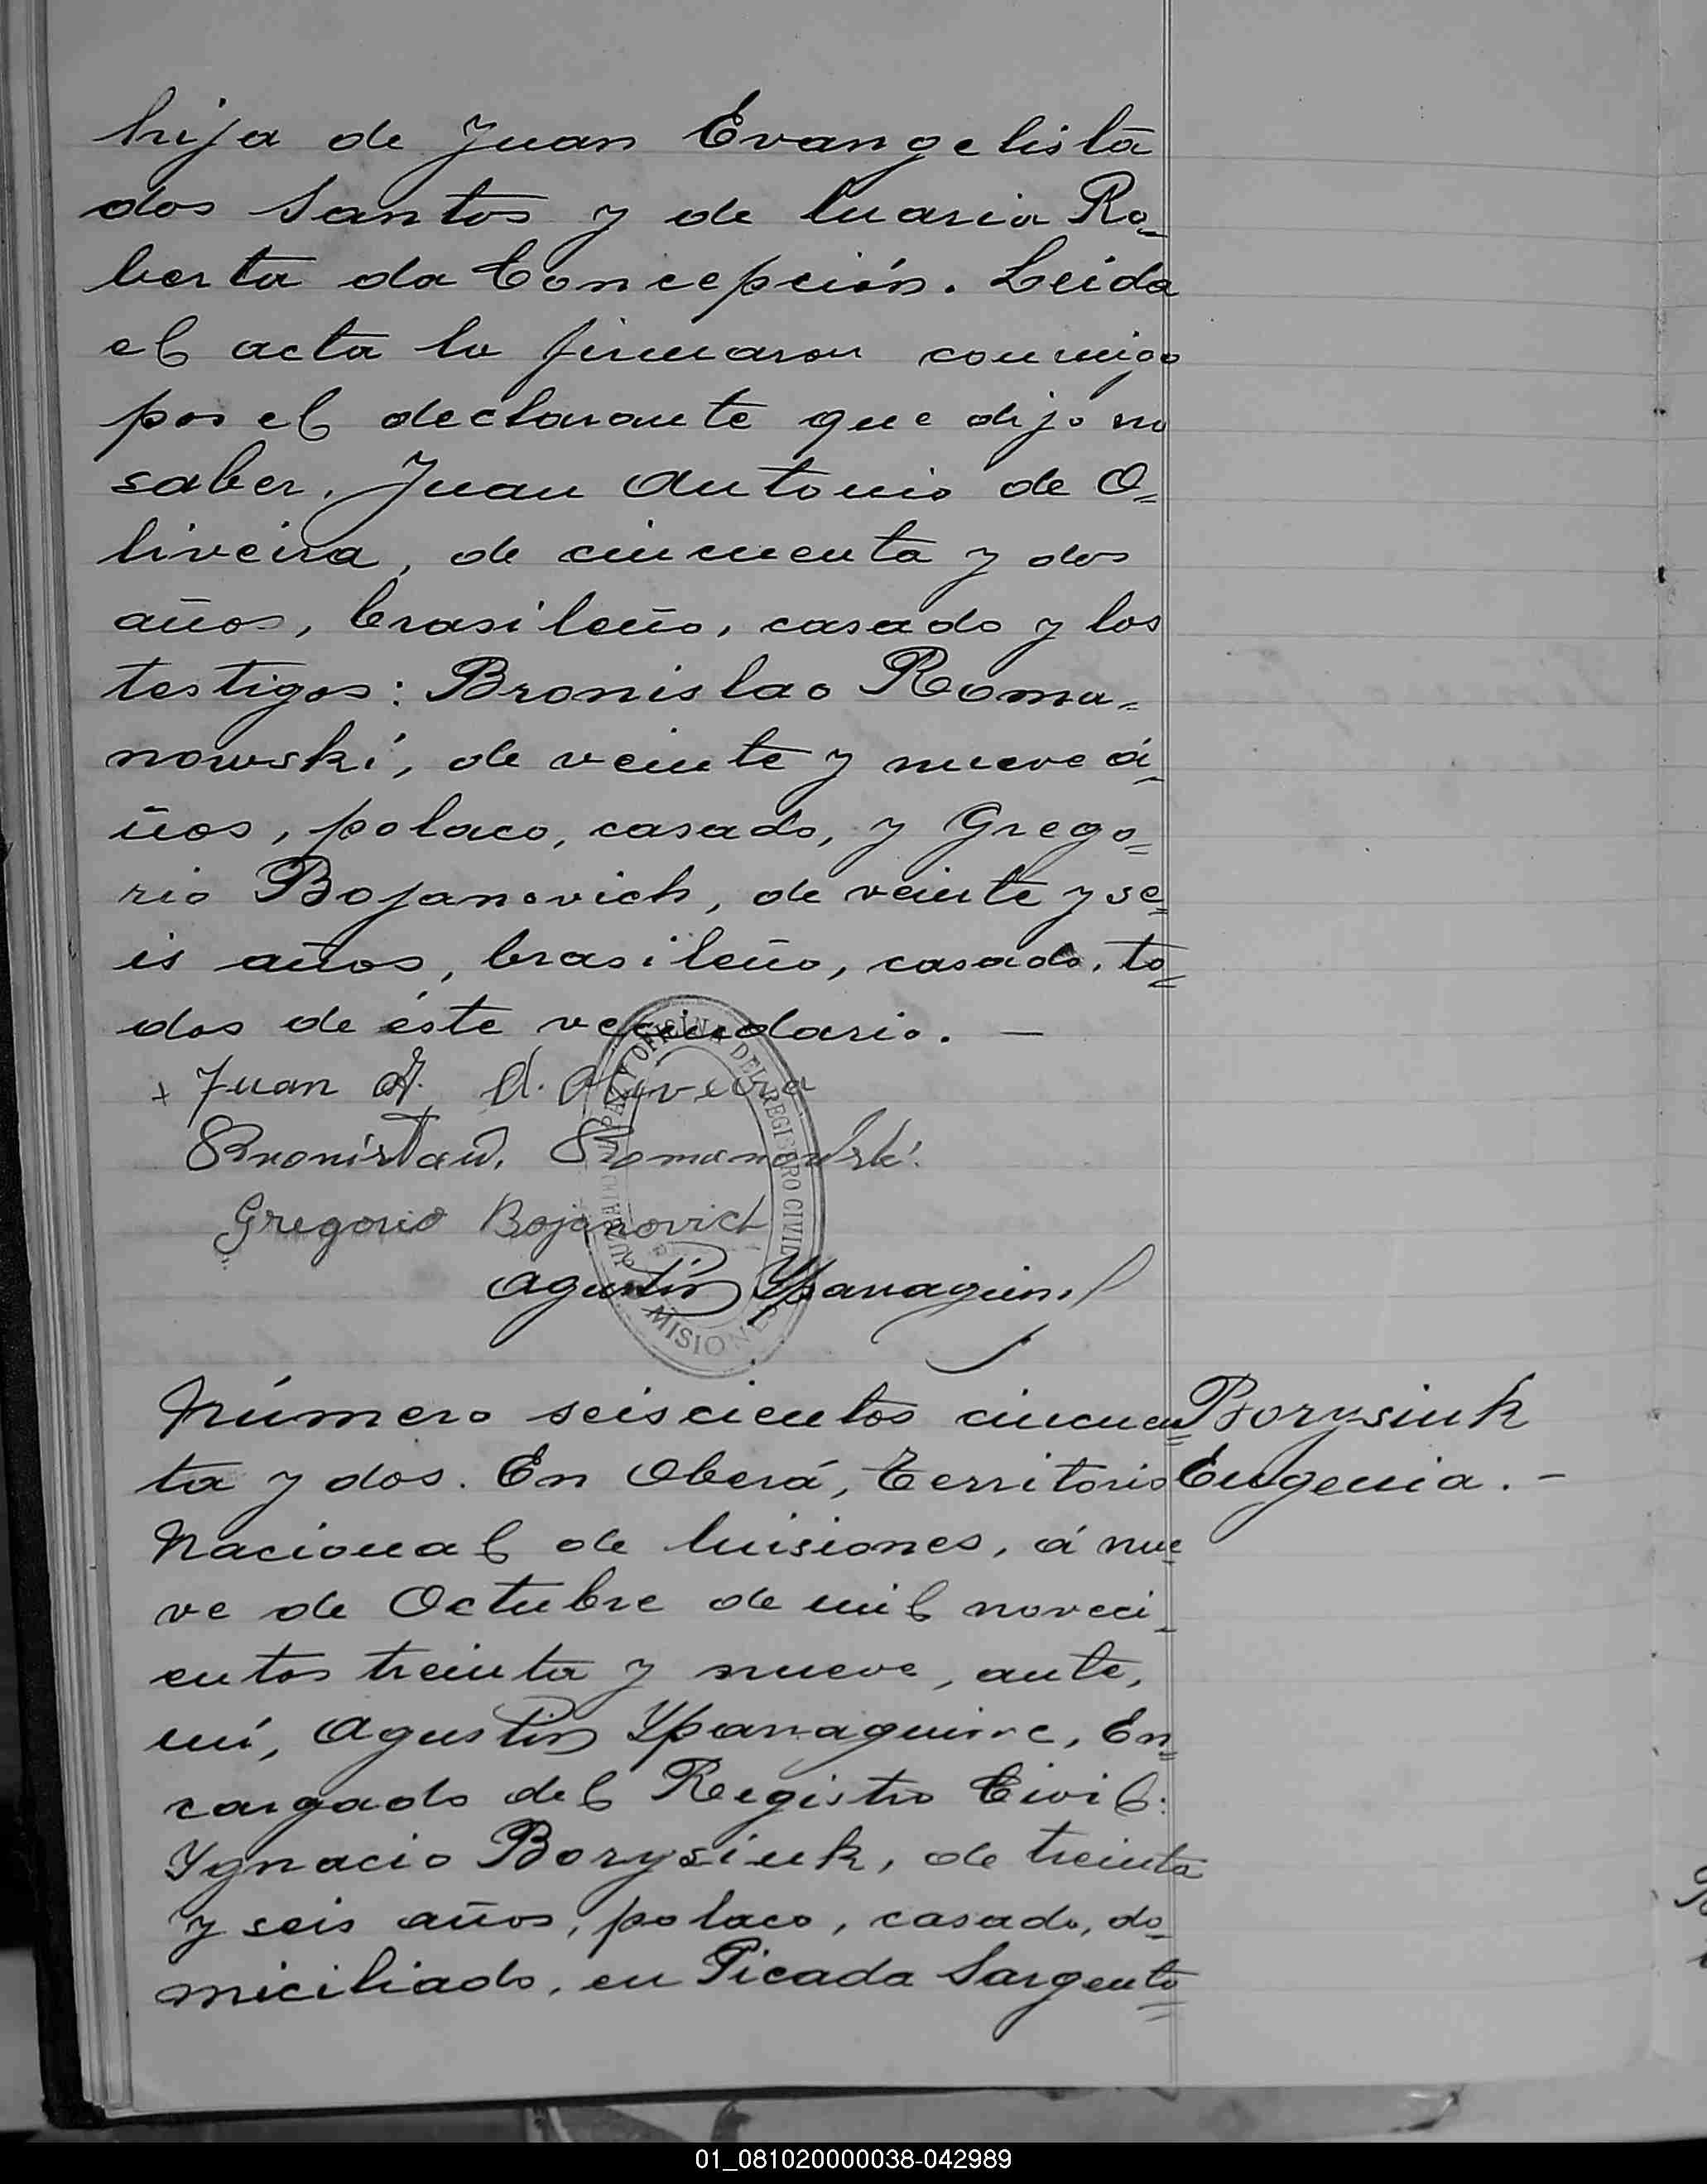 hija de Juan Evangelista
dos Santos y de Maria Ro=
berta da Concepción. Leida
el acta la firmaron conmigo
por el declarante que dijo no
saber, Juan Antonio de O=
liveira, de cincuenta y dos
años, brasileño, casado y los
testigos: Bronislao Roma=
nowski, de veinte y nueve a-
ños, polaco, casado, y Grego=
rio Bojanovich, de veinte y se=
is años, brasileño, casado, to=
dos de éste vecindario. —
+ Juan A. d. Oliveira
Bronisław Romanowski
Gregorio Bojanovich
Agustin Yparraguirre
OFICINA DEL REGISTRO CIVIL
MISIONES
Número seiscientos cincuen=
ta y dos. En Oberá, Territorio
Nacional de Misiones, á nue=
ve de Octubre de mil noveci-
entos treinta y nueve, ante,
mí, Agustin Yparraguirre, En=
cargado del Registro Civil:
Ygnacio Borysiuk, de treinta
y seis años, polaco, casado, do-
miciliado, en Picada Sargento=
Borysiuk
Eugenia. –
01_081020000038-042989